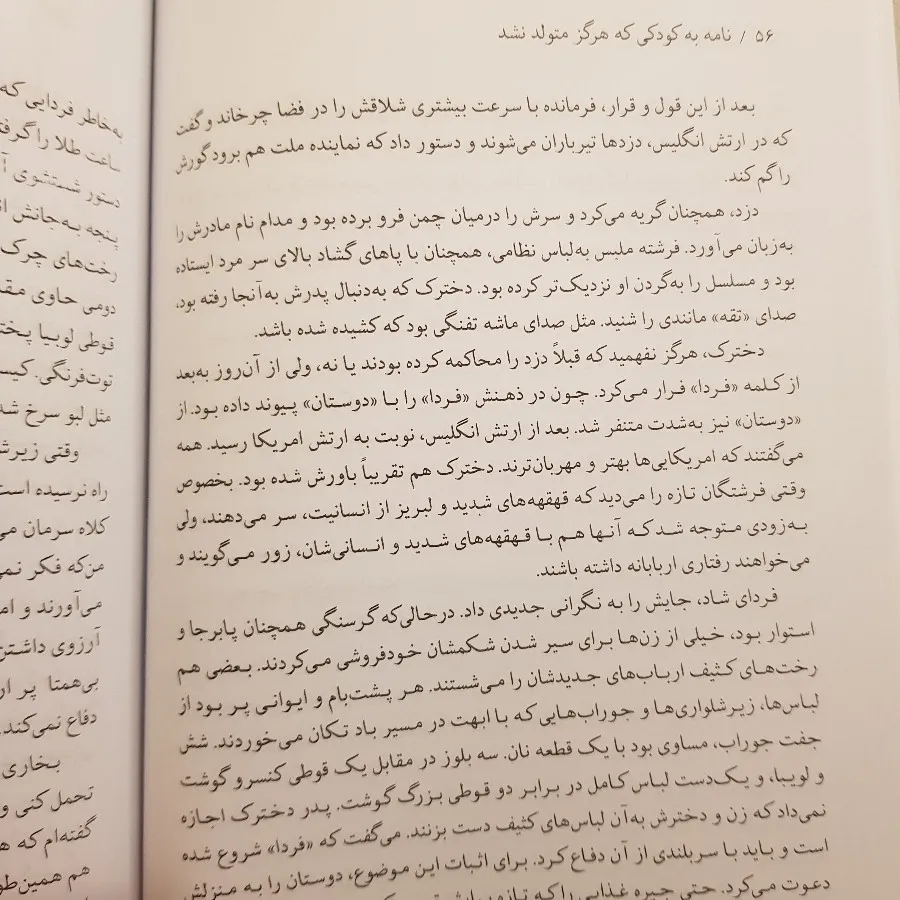 ۵۶ / نامه به کودکی که هرگز متولد نشد
بعد از این قول و قرار، فرمانده با سرعت بیشتری شلاقش را در فضا چرخاند و گفت
که در ارتش انگلیس، دزدها تیرباران می‌شوند و دستور داد که نماینده ملت هم برود گورش
را گم کند.
دزد، همچنان گریه می‌کرد و سرش را درمیان چمن فرو برده بود و مدام نام مادرش را
به‌زبان می‌آورد. فرشته ملبس به‌لباس نظامی، همچنان با پاهای گشاد بالای سر مرد ایستاده
بود و مسلسل را به‌گردن او نزدیک‌تر کرده بود. دخترک که به‌دنبال پدرش به‌آنجا رفته بود،
صدای «تقه» مانندی را شنید. مثل صدای ماشه تفنگی بود که کشیده شده باشد.
دخترک، هرگز نفهمید که قبلاً دزد را محاکمه کرده بودند یا نه، ولی از آن‌روز به‌بعد
از کلمه «فردا» فرار می‌کرد. چون در ذهنش «فردا» را با «دوستان» پیوند داده بود. از
«دوستان» نیز به‌شدت متنفر شد. بعد از ارتش انگلیس، نوبت به ارتش امریکا رسید. همه
می‌گفتند که امریکایی‌ها بهتر و مهربان‌ترند. دخترک هم تقریباً باورش شده بود. بخصوص
وقتی فرشتگان تازه را می‌دید که قهقهه‌های شدید و لبریز از انسانیت، سر می‌دهند، ولی
به‌زودی متوجه شد که آنها هم با قهقهه‌های شدید و انسانی‌شان، زور می‌گویند و
می‌خواهند رفتاری اربابانه داشته باشند.
فردای شاد، جایش را به نگرانی جدیدی داد. درحالی‌که گرسنگی همچنان پابرجا و
استوار بود، خیلی از زن‌ها برای سیر شدن شکمشان خودفروشی می‌کردند. بعضی هم
رخت‌های کثیف ارباب‌های جدیدشان را می‌شستند. هر پشت‌بام و ایوانی پر بود از
لباس‌ها، زیرشلواری‌ها و جوراب‌هایی که با ابهت در مسیر باد تکان می‌خوردند. شش
جفت جوراب، مساوی بود با یک قطعه نان. سه بلوز در مقابل یک قوطی کنسرو گوشت
و لوبیا، و یک‌دست لباس کامل در برابر دو قوطی بزرگ گوشت. پدر دخترک اجازه
نمی‌داد که زن و دخترش به‌آن لباس‌های کثیف دست بزنند. می‌گفت که «فردا» شروع شده
است و باید با سربلندی از آن دفاع کرد. برای اثبات این موضوع، دوستان را به منزلش
دعوت می‌کرد. حتی جیره غذایی را که تازه
به‌خاطر فردایی که
ساعت طلا را گرفت
دستور شستشوی
پنجه به‌جانش
رخت‌های چرک
دومی حاوی
قوطی لوبیا
توت‌فرنگی.
مثل لبو سرخ
وقتی
راه نرسیده است
کلاه سرمان
من‌که فکر
می‌آورند و
آرزوی داشتن
بی‌همتا پر
دفاع نمی‌کند.
بخاری
تحمل کنی و
گفته‌ام که
هم